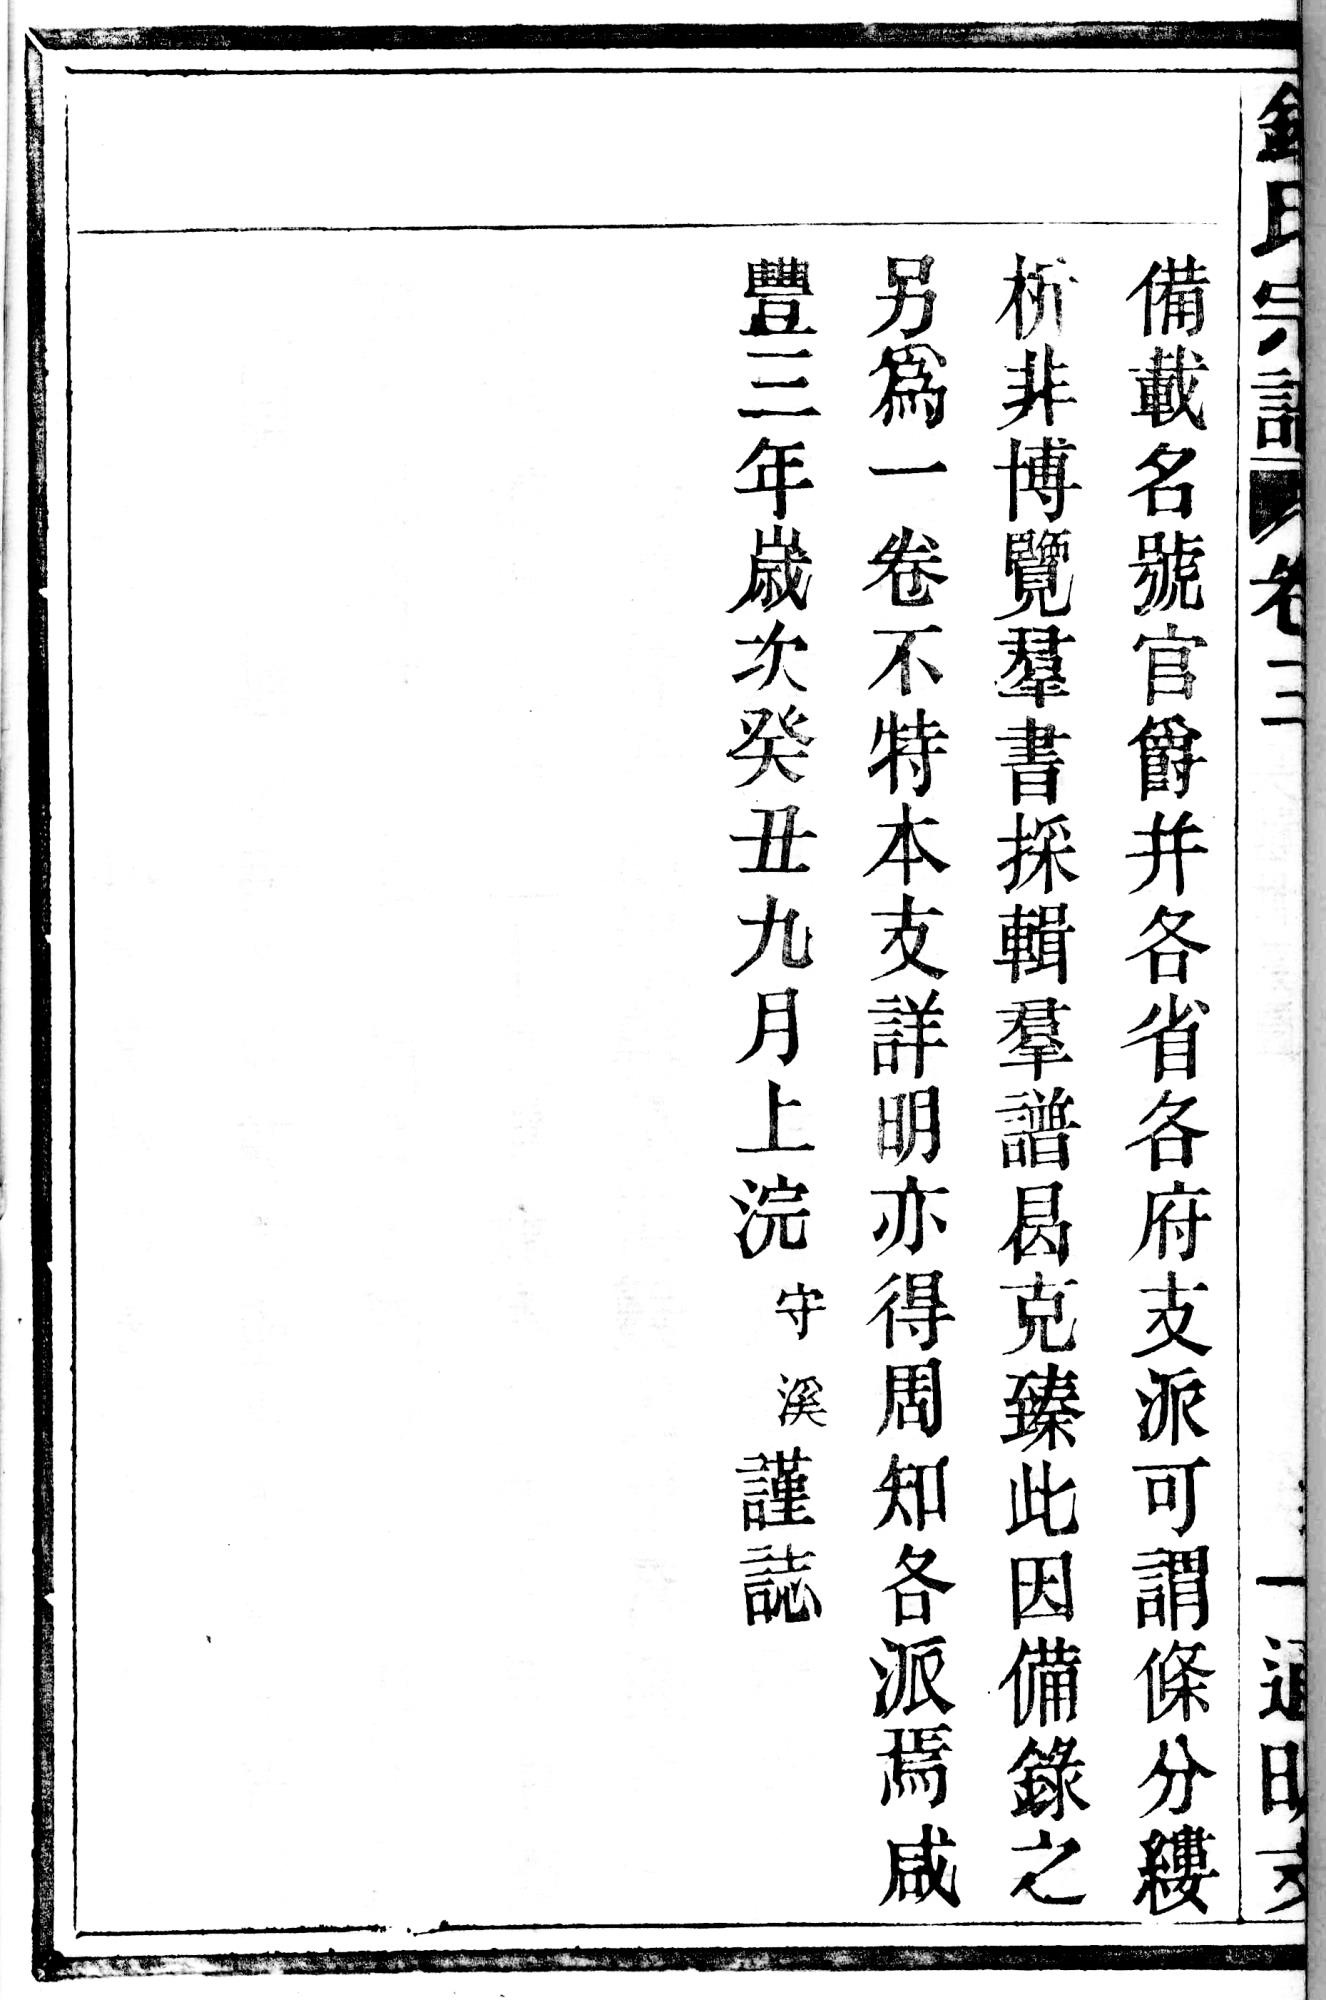 氏宗譜 卷三 一 通明支
備載名號官爵并各省各府支派可謂條分縷
析非博覽羣書採輯羣譜曷克臻此因備錄之
另爲一卷不特本支詳明亦得周知各派焉咸
豐三年歲次癸丑九月上浣守溪謹誌